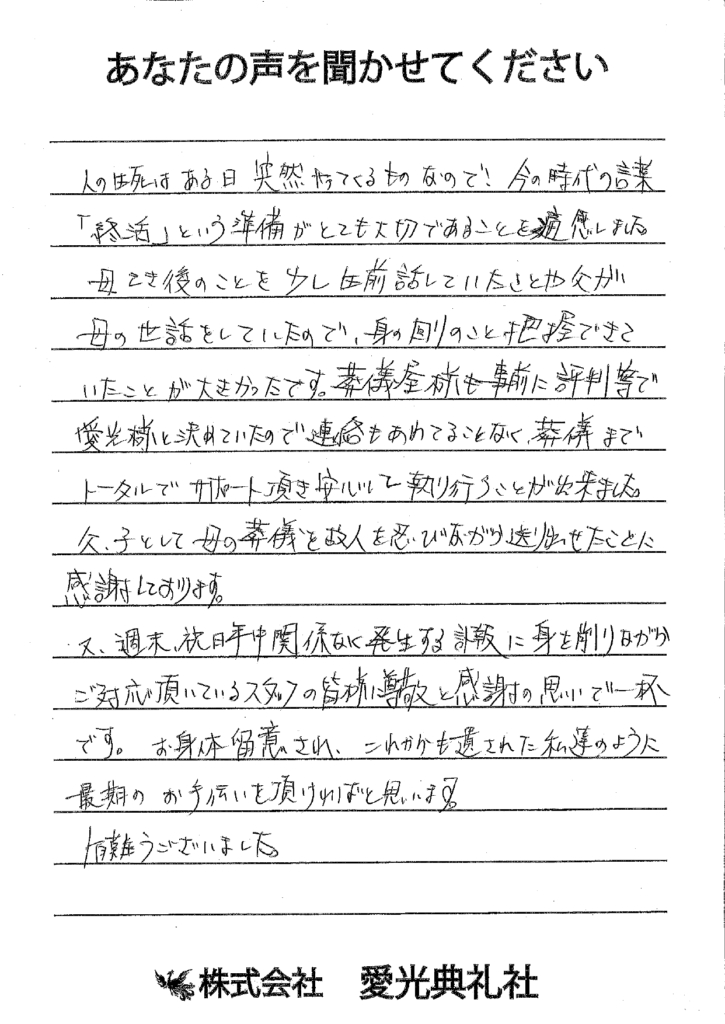 あなたの声を聞かせてください
人の生死はある日突然やってくるものなので！今の時代の言葉
「終活」という準備がとても大切であることを痛感しました。
母亡き後のことを少し生前話していたことや父が
母の世話をしていたので、身の回りのこと把握できて
いたことが大きかったです。葬儀屋様も事前に評判等で
愛光様と決めていたので連絡もあわてることなく、葬儀まで
トータルでサポート頂き安心して執り行うことが出来ました。
父、子として母の葬儀を故人を忍びながら送り出せたことに
感謝しております。
又、週末、祝日年中関係なく発生する訃報に身を削りながら
ご対応頂いているスタッフの皆様に尊敬と感謝の思いで一杯
です。お身体留意され、これからも遺された私達のように
最期のお手伝いを頂ければと思います。
有難うございました。
株式会社 愛光典礼社